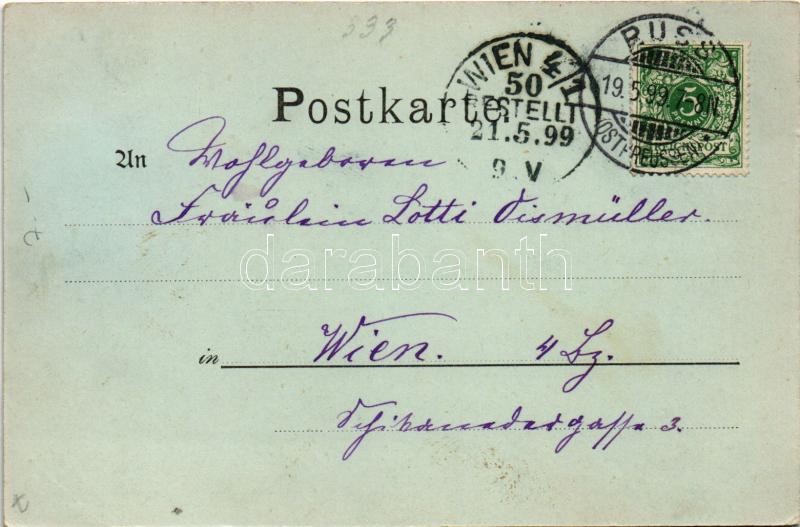 533
Postkarte
WIEN 4/1
50
BESTELLT
21.5.99
9. V
RUSS
19.5.99. 7-8 N.
(OSTPREUSSEN)
5
REICHSPOST
An Wohlgeboren
Fräulein Lotti Dismüller.
darabanth
in Wien. 4 Bz.
Schikanedergasse 3.